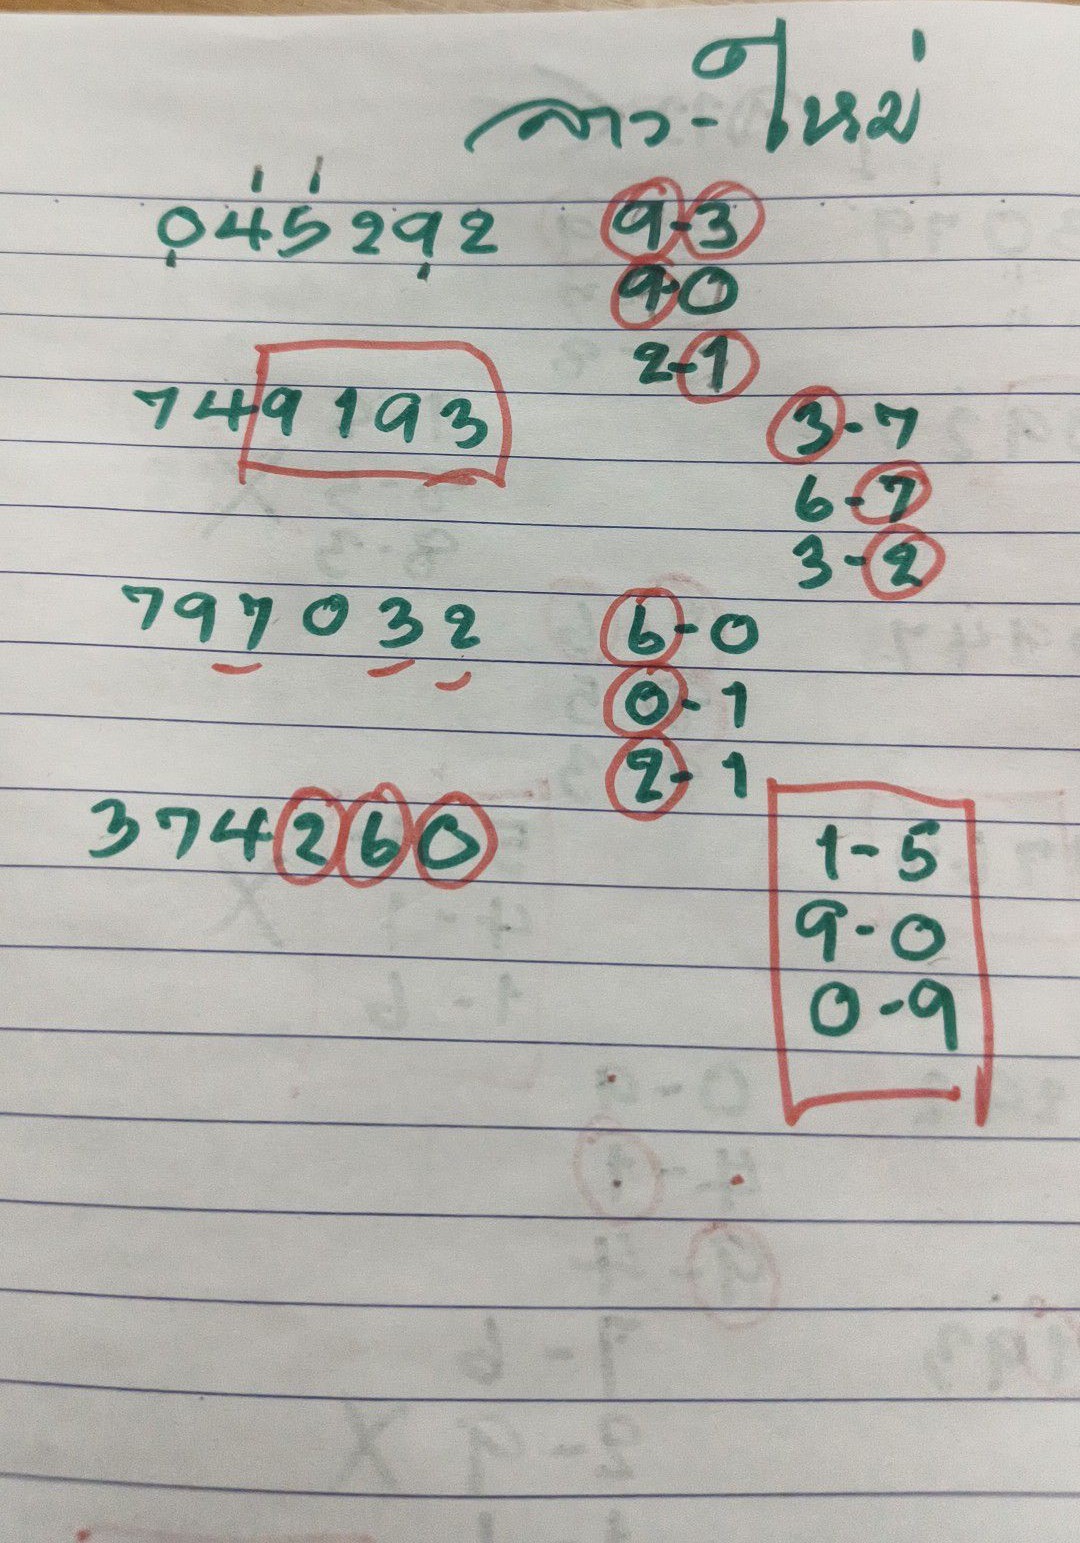 ลาว-ใหม่
045292 9-3
9-0
2-1
749193
3-7
6-7
3-2
797032 6-0
0-1
2-1
374260
1-5
9-0
0-9